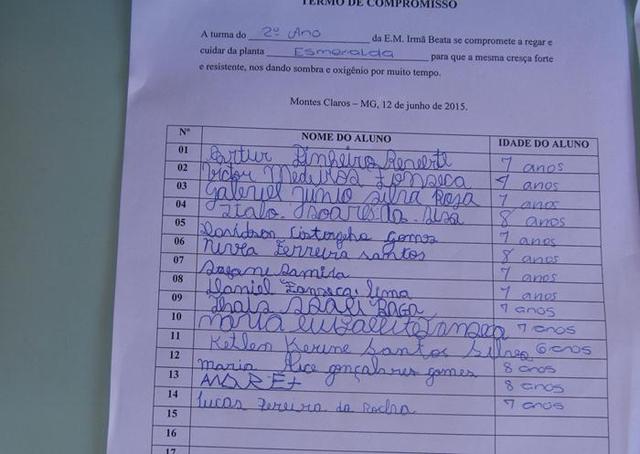 TERMO DE COMPROMISSO
A turma do 2º Ano da E.M. Irmã Beata se compromete a regar e
cuidar da planta Esmeralda para que a mesma cresça forte
e resistente, nos dando sombra e oxigênio por muito tempo.
Montes Claros – MG, 12 de junho de 2015.
Nº NOME DO ALUNO IDADE DO ALUNO
01 Artur Pinheiro 7 anos
02 Victor Medeiros Fonseca 7 anos
03 Gabriel Junio Silva Rosa 7 anos
04 Italo Soares da Silva 8 anos
05 Davidson Gomes 7 anos
06 Ferreira Santos 8 anos
07 Samira 7 anos
08 Daniel Fonseca Lima 7 anos
09 Thais 7 anos
10 Maria Fonseca 7 anos
11 Ketlen Kerine Santos Silva 6 anos
12 maria Alice gonçalves gomes 8 anos
13 ANDRE 8 anos
14 Lucas Pereira da Rocha 7 anos
15
16
17